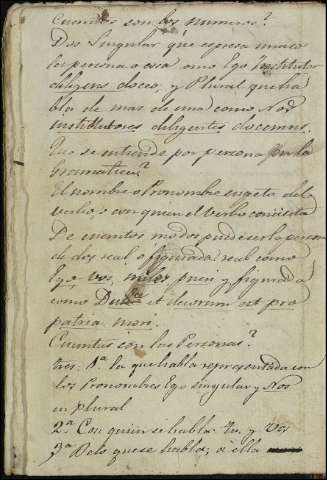 Cuentos son los numeros?
Dos Singular que espresa unica
la persona o cosa como Ego Institutor
diligens doceo, y Plural que ha
bla de mas de una como Nos
institutores diligentes docemus.
Que se intiende por persona en la
Gramatica?
El nombre o Pronombre sugeto del
verbo, o con quien el verbo concierta
De cuentos modos puede ser la persona
de dos real o figurada real como
Ego vos, miles pueri y figurada
como Dulce et decorum est pro
patria mori.
Cuentas son las Personas?
tres. 1ª la que habla representada con
los Pronombres Ego singular y Nos
en plural
2ª Con quien se habla. tu. y Vos
3ª Delo que se habla; o ella